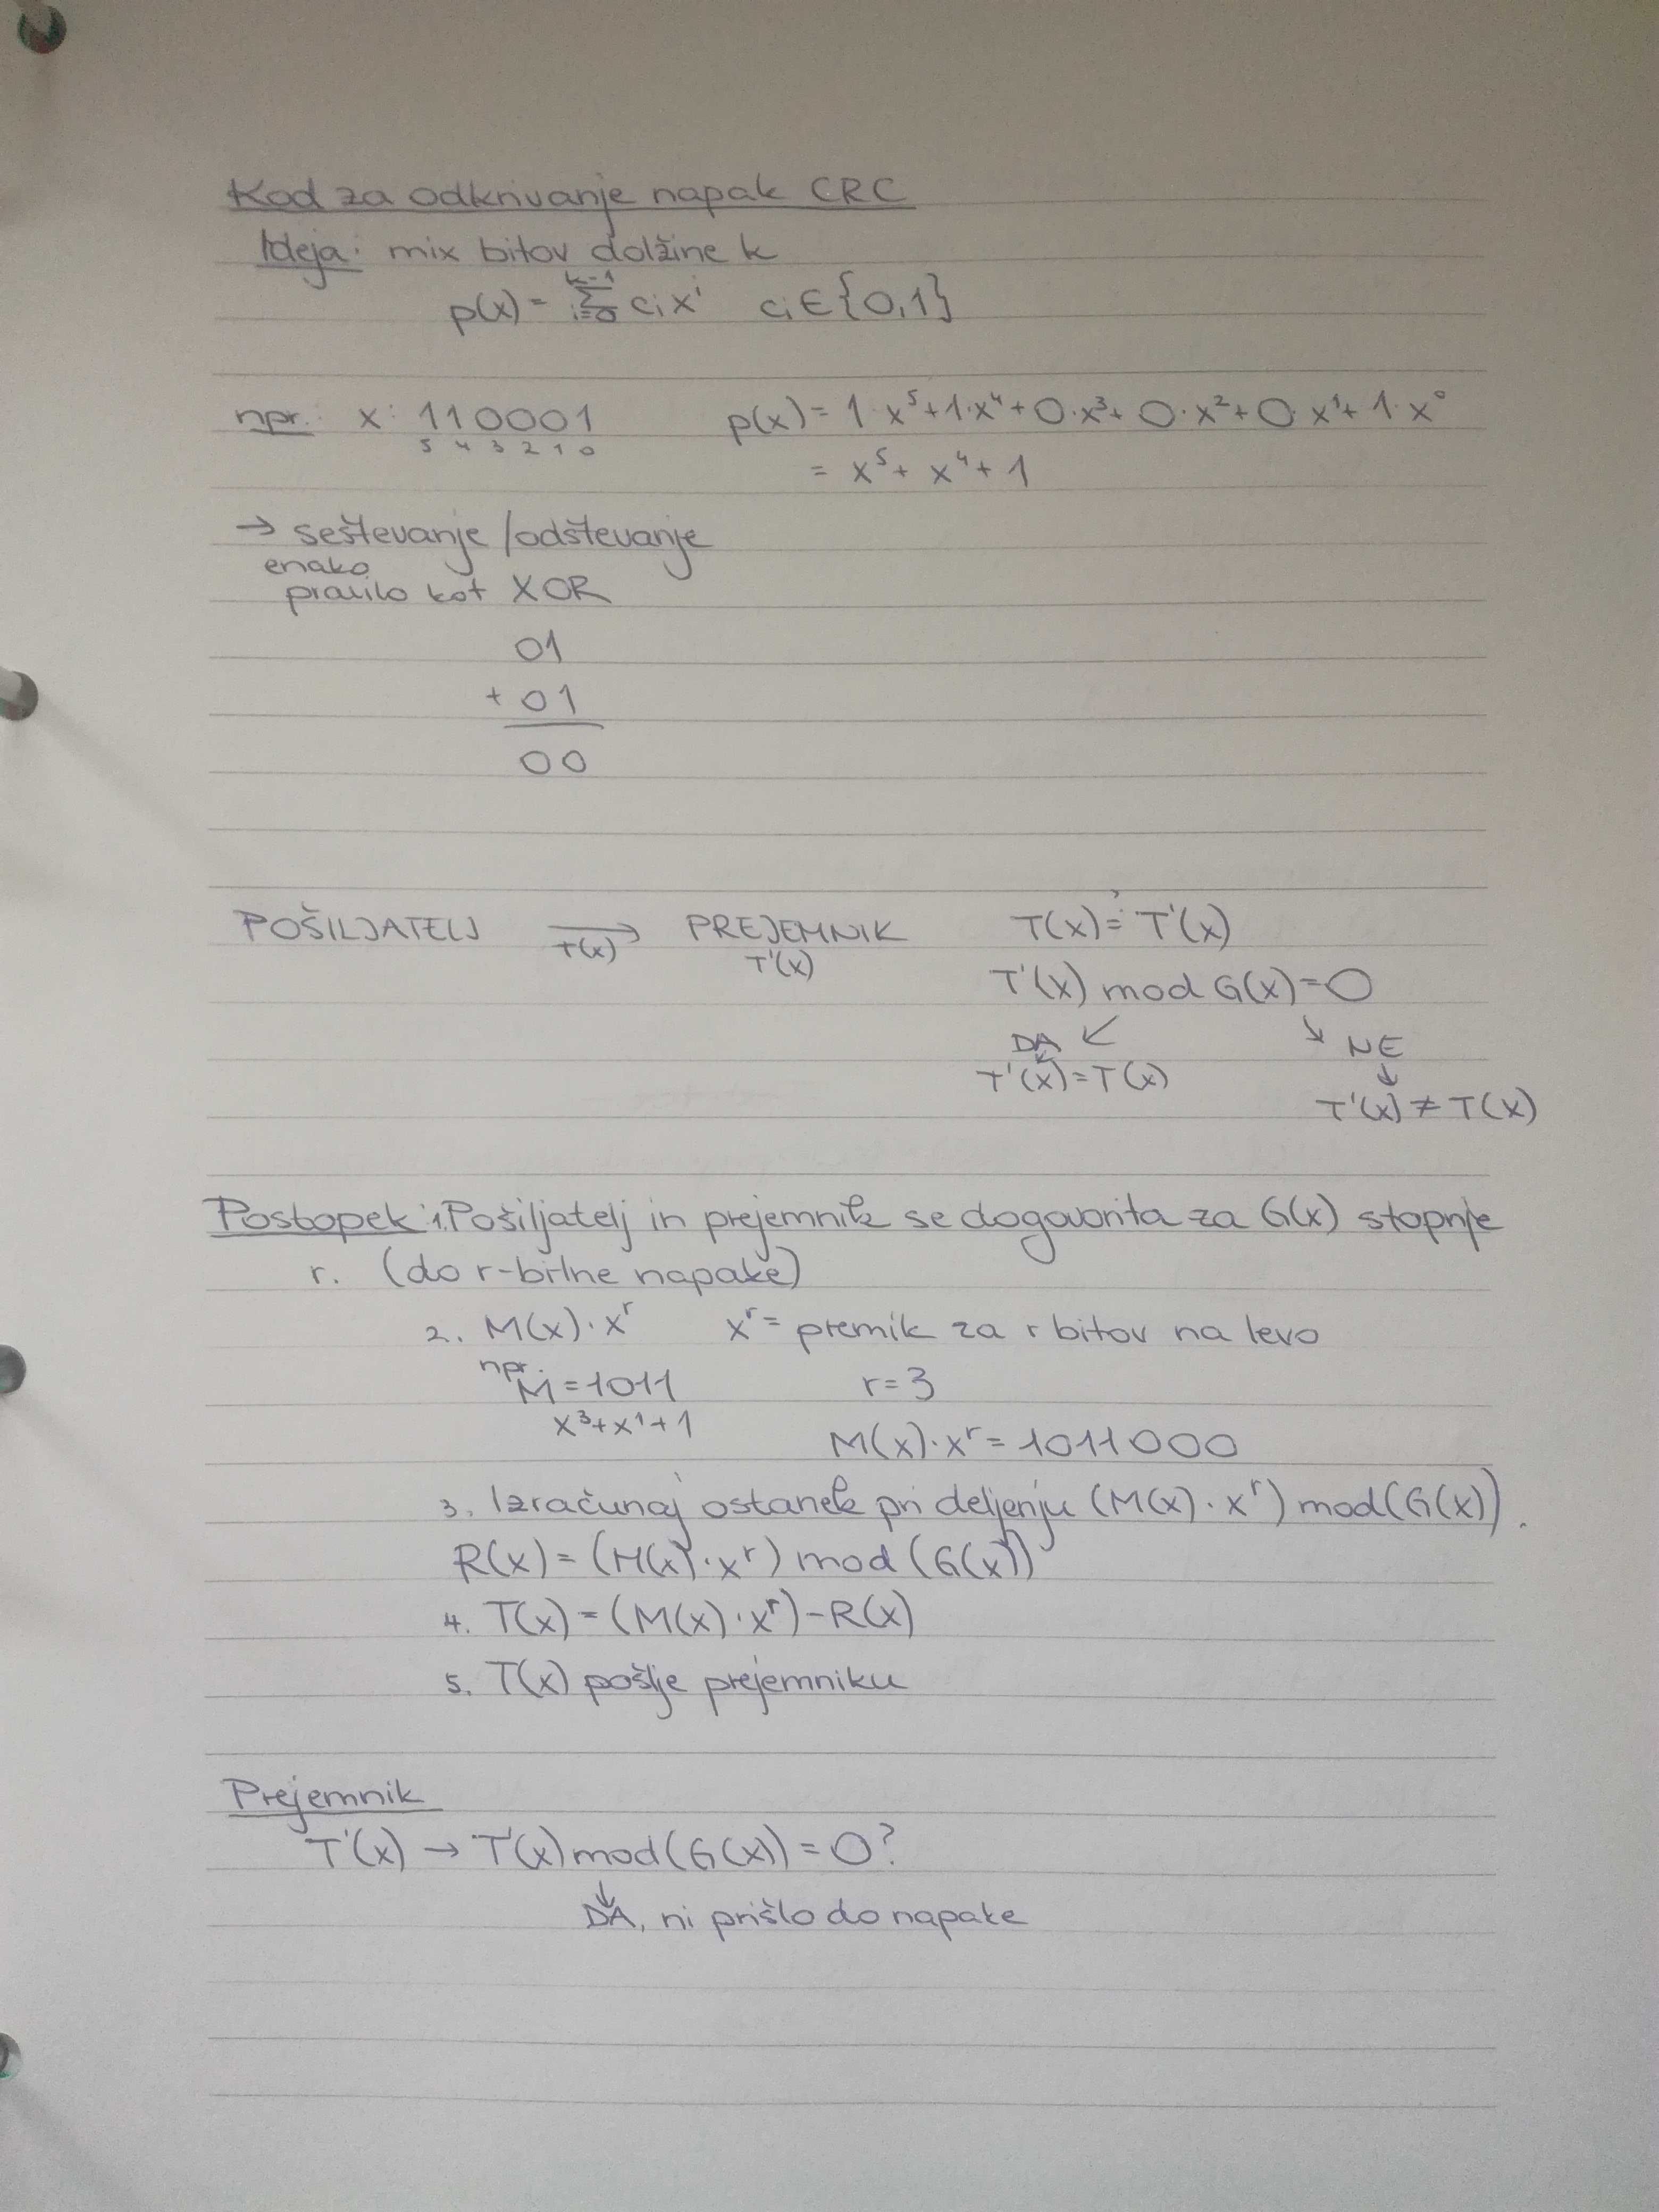 Kod za odkrivanje napak CRC
Ideja: mix bitov dolžine k
p(x) = ∑_{i=0}^{k-1} cᵢxⁱ cᵢ∈{0,1}
npr.: x: 110001 p(x) = 1·x⁵+1·x⁴+0·x³+0·x²+0·x¹+1·x⁰
5 4 3 2 1 0
= x⁵+x⁴+1
→ seštevanje /odštevanje
enako
pravilo kot XOR
01
+ 01
00
POŠILJATELJ → PREJEMNIK T(x) ≟ T'(x)
T(x) T'(x)
T'(x) mod G(x)=0
DA ↙ ↘ NE
↓ ↓
T'(x)=T(x)
T'(x) ≠ T(x)
Postopek: 1. Pošiljatelj in prejemnik se dogovorita za G(x) stopnje
r. (do r-bitne napake)
2. M(x)·xʳ xʳ = premik za r bitov na levo
npr.
M=1011 r=3
x³+x¹+1
M(x)·xʳ=1011000
3. Izračunaj ostanek pri deljenju (M(x)·xʳ) mod(G(x)).
R(x) = (M(x)·xʳ) mod (G(x))
4. T(x) = (M(x)·xʳ)-R(x)
5. T(x) pošlje prejemniku
Prejemnik
T'(x) → T'(x) mod(G(x)) = 0?
↓
DA, ni prišlo do napake